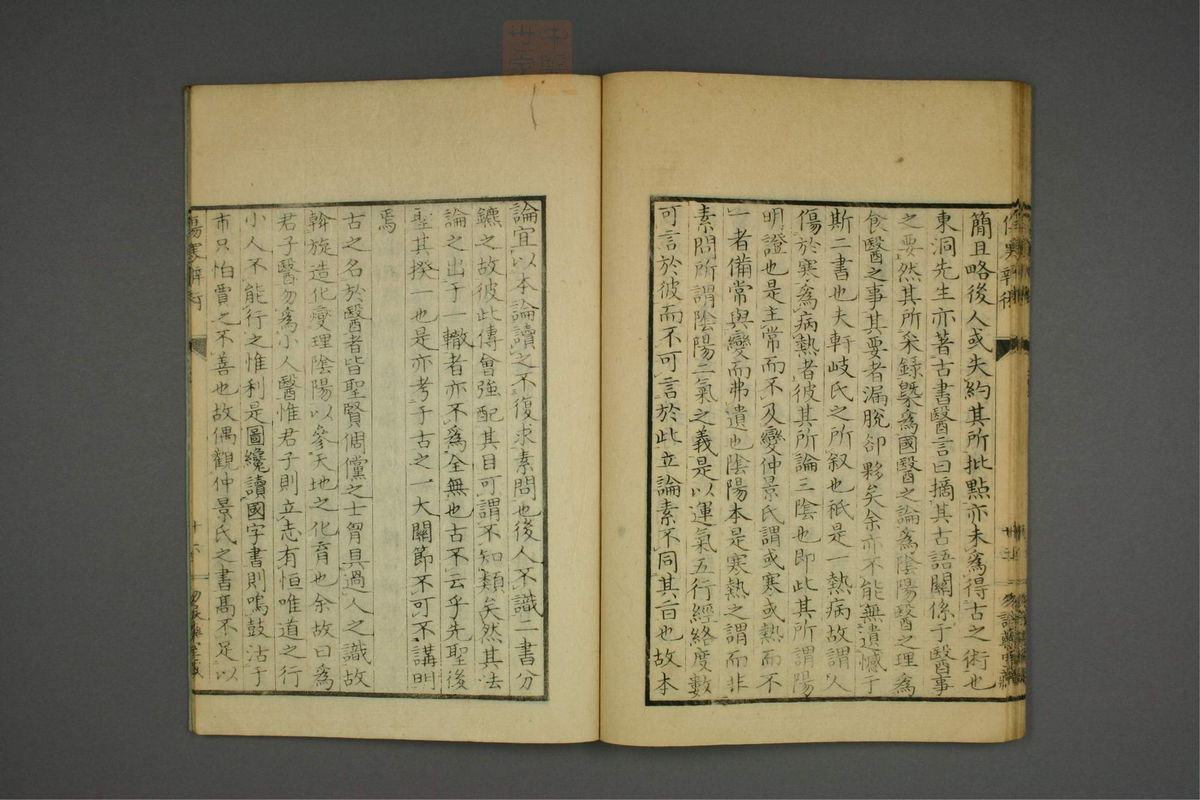 簡且略後人或失約其所批點亦未爲得古之術也
東洞先生亦著古書醫言曰摘其古語關係于醫事
之要然其所采錄槩爲國醫之論爲陰陽醫之理爲
食醫之事其要者漏脫卻夥矣余亦不能無遺憾于
斯二書也夫軒岐氏之所叙也祇是一熱病故謂人
傷於寒爲病熱者彼其所論三陰也即此其所謂陽
明證也是主常而不及變仲景氏謂或寒或熱而不
一者備常與變而弗遺也陰陽本是寒熱之謂而非
素問所謂陰陽二氣之義是以運氣五行經絡度數
可言於彼而不可言於此立論素不同其旨也故本
論宜以本論讀之不復求素問也後人不識二書分
鑣之故彼此傳會強配其目可謂不知類矣然其法
論之出于一轍者亦不爲全無也古不云乎先聖後
聖其揆一也是亦考于古之一大關節不可不講明
焉
古之名於醫者皆聖賢倜儻之士胷具過人之識故
斡旋造化燮理陰陽以參天地之化育也余故曰爲
君子醫勿爲小人醫惟君子則立志有恒唯道之行
小人不能行之惟利是圖纔讀國字書則鳴鼓沽于
市只怕賈之不善也故偶觀仲景氏之書髙不足以
傷寒
十六